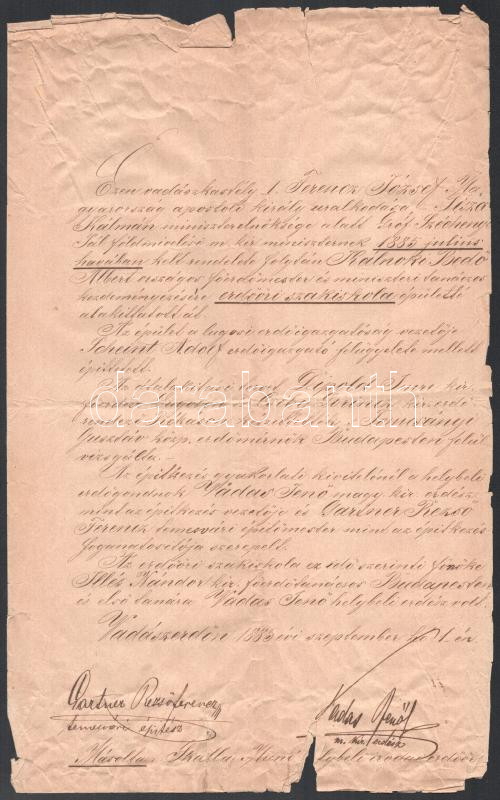 Ezen vadászkastély I. Ferencz József Ma-
gyarország apostoli király uralkodása - Tisza
Kálmán miniszterelnöksége alatt Gróf Széchenyi
Pál földmivelési m. kir. miniszternek 1885 julius
havában kelt rendelete folytán Kálnoki Bedő
Albert országos főerdőmester és miniszteri tanácsos
kezdeményezésére erdőőri szakiskola épületté
alakíttatott át.
Az épület a lugosi erdőigazgatóság vezetője
Adolf erdőigazgató felügyelete mellett
építtetett.
Az átalakítási Lipold Imre kir.
kir. erdő-
Gusztáv közp. erdőmérnök Budapesten felül
vizsgálta. -
Az építkezés gyakorlati kivitelénél a helybeli
erdőgondnok Vadas Jenő magy. kir. erdész
mint az építkezés vezetője és Gartner Rezső
Ferencz temesvári építőmester mint az építkezés
foganatosítója szerepelt.
Az erdőőri szakiskola ez idő szerinti főnöke
Illés Nándor kir. főerdőtanácsos Budapesten
és első tanára Vadas Jenő helybeli erdész volt.
Vadászerdőn 1885 évi szeptember hó 1-én
Gartner Rezső Ferencz
temesvári építész
Vadas Jenő
m. kir. erdész
Másolta
darabanth